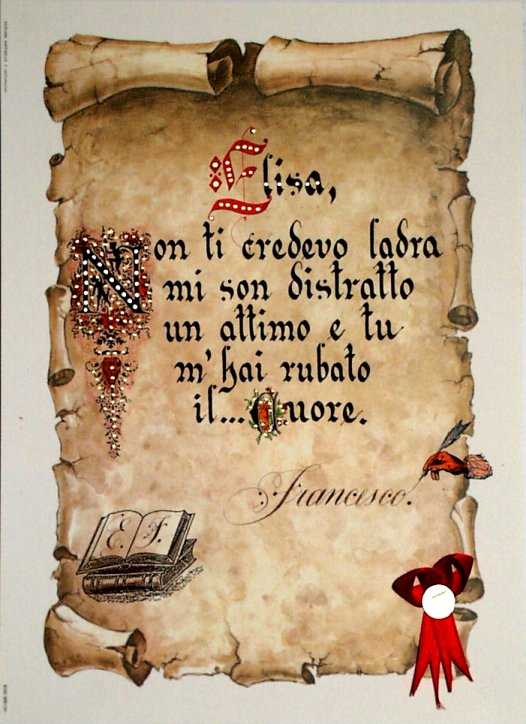 Elisa,
Non ti credevo ladra
mi son distratto
un attimo e tu
m'hai rubato
il... Cuore.
Francesco.
E. F.